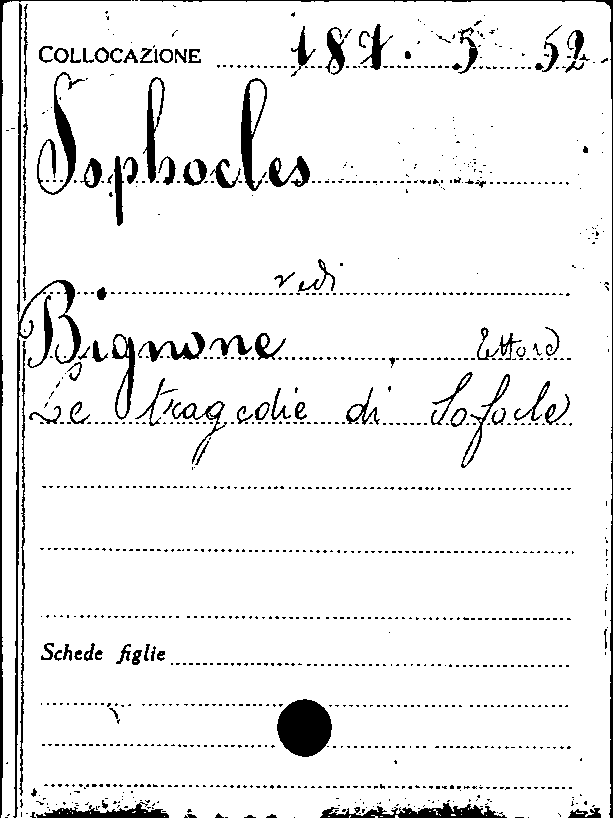 COLLOCAZIONE 187. 5 52
Sophocles
vedi
Bignone, Ettore
Le tragedie di Sofocle
Schede figlie